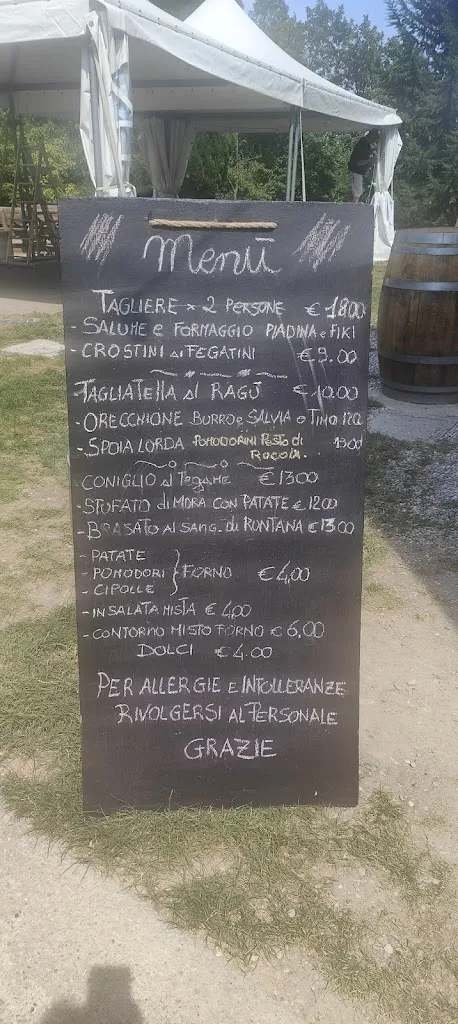 Menù
TAGLIERE x 2 PERSONE € 18.00
- SALUME e FORMAGGIO PIADINA e FIKI
- CROSTINI ai FEGATINI € 9.00
TAGLIATELLA al RAGÙ € 10.00
- ORECCHIONE BURRO e SALVIA o TIMO 12.00
- SPOIA LORDA POMODORINI Pesto di 13.00
RUCOLA.
- CONIGLIO al Tegame € 13.00
- STUFATO di MORA CON PATATE € 12.00
- BRASATO AL SANG. di ROMANA € 13.00
- PATATE
- POMODORI } FORNO € 4,00
- CIPOLLE
- INSALATA MISTA € 4,00
- CONTORNO MISTO FORNO € 6,00
DOLCI € 4.00
PER ALLERGIE e INTOLLERANZE
RIVOLGERSI AL PERSONALE
GRAZIE